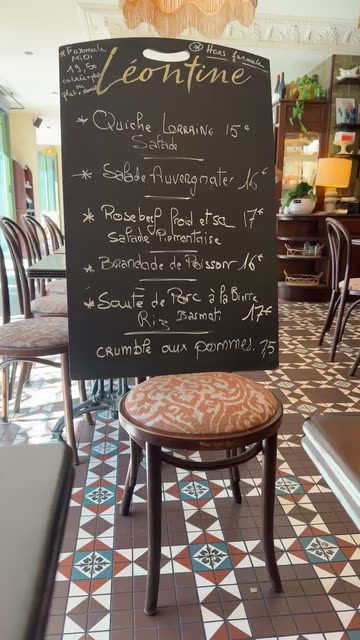 * Formule
Midi
19,50
entrée + plat
ou
plat + dessert
* Hors formule
Léontine
* Quiche Lorraine 15€
Salade
* Salade Auvergnate 16€
* Rosbeef froid et sa 17€
Salade Piémontaise
* Brandade de Poisson 16€
* Sauté de Porc à la Bière
Riz Basmati 17€
Crumble aux pommes. 7,5